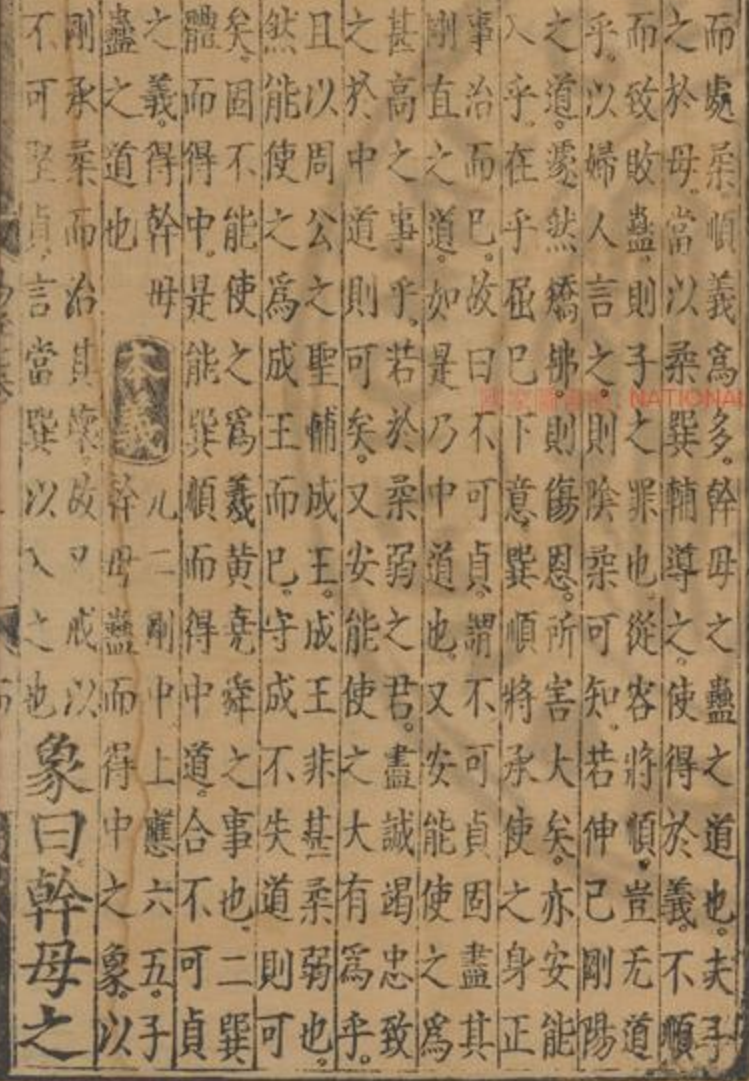 而處柔順義爲多幹母之蠱之道也。夫子
之於母。當以柔巽輔導之。使得於義。不順
而致敗蠱。則子之罪也。從容將順。豈无道
乎。以婦人言之。則陰柔可知。若伸己剛陽
之道。遽然矯拂。則傷恩。所害大矣。亦安能
入乎。在乎屈巳下意。巽順將承。使之身正
事治而巳。故曰不可貞。謂不可貞固盡其
剛直之道。如是乃中道也。又安能使之爲
甚高之事乎。若於柔弱之君。盡誠竭忠致
之於中道則可矣。又安能使之大有爲乎。
且以周公之聖輔成王。成王非甚柔弱也。
然能使之爲成王而巳。守成不失道則可
矣。固不能使之爲羲黃堯舜之事也。二巽
體而得中。是能巽順而得中道。合不可貞
之義。得幹母
蠱之道也
本義
九二剛中上應六五。子
幹母蠱而得中之象。以
剛承柔而治其壞。故又戒以
不可堅貞。言當巽以入之也
象曰幹母之
NATIONAL